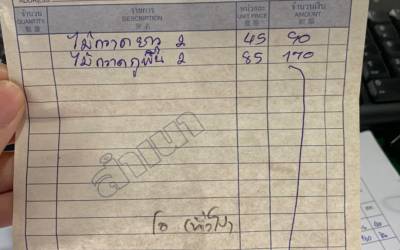 ADDRESS
จำนวน รายการ หน่วยละ จำนวนเงิน
QUANTITY DESCRIPTION UNIT PRICE AMOUNT
數量
ไม้กวาดยาว 2 45 90
ไม้กวาด 2 85 170
สำเนา